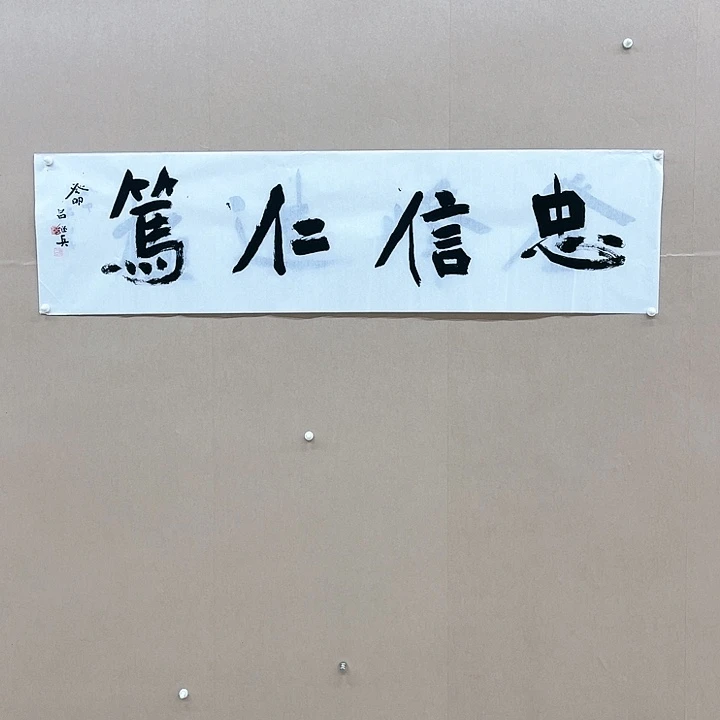 忠信仁篤
癸卯
呂